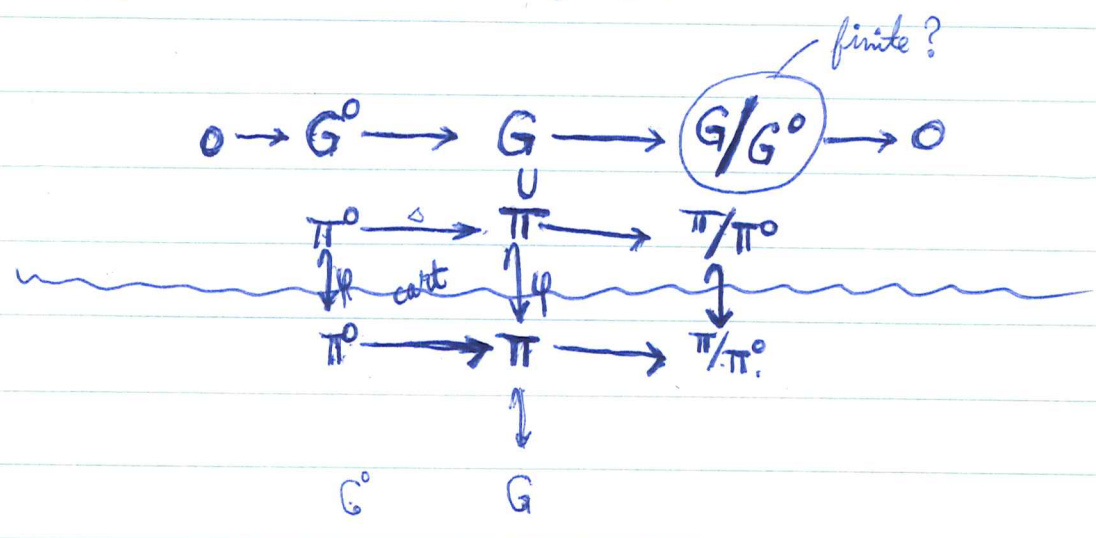 finite?
0 → G⁰ → G → G/G⁰ → 0
∪
π⁰ →△ π → π/π⁰
φ cart φ
π⁰ → π → π/π⁰.
G⁰ G